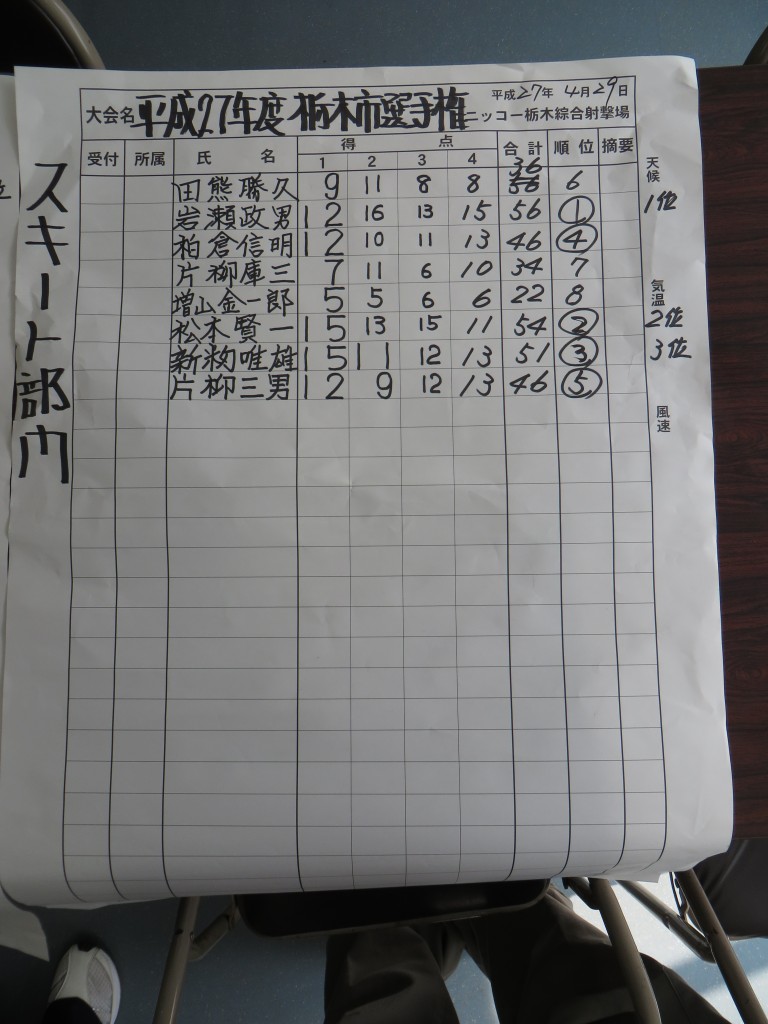 平成27年 4月29日
大会名 平成27年度 栃木市選手権 ニッコー栃木綜合射撃場
受付 所属 氏名 得点 合計 順位 摘要
1 2 3 4
田熊勝久 9 11 8 8 36 6
岩瀬政男 12 16 13 15 56 ①
柏倉信明 12 10 11 13 46 ④
片柳庫三 7 11 6 10 34 7
増山金一郎 5 5 6 6 22 8
松本賢一 15 13 15 11 54 ②
新籾唯雄 15 11 12 13 51 ③
片柳三男 12 9 12 13 46 ⑤
スキート部門
天候
1位
気温
2位
3位
風速